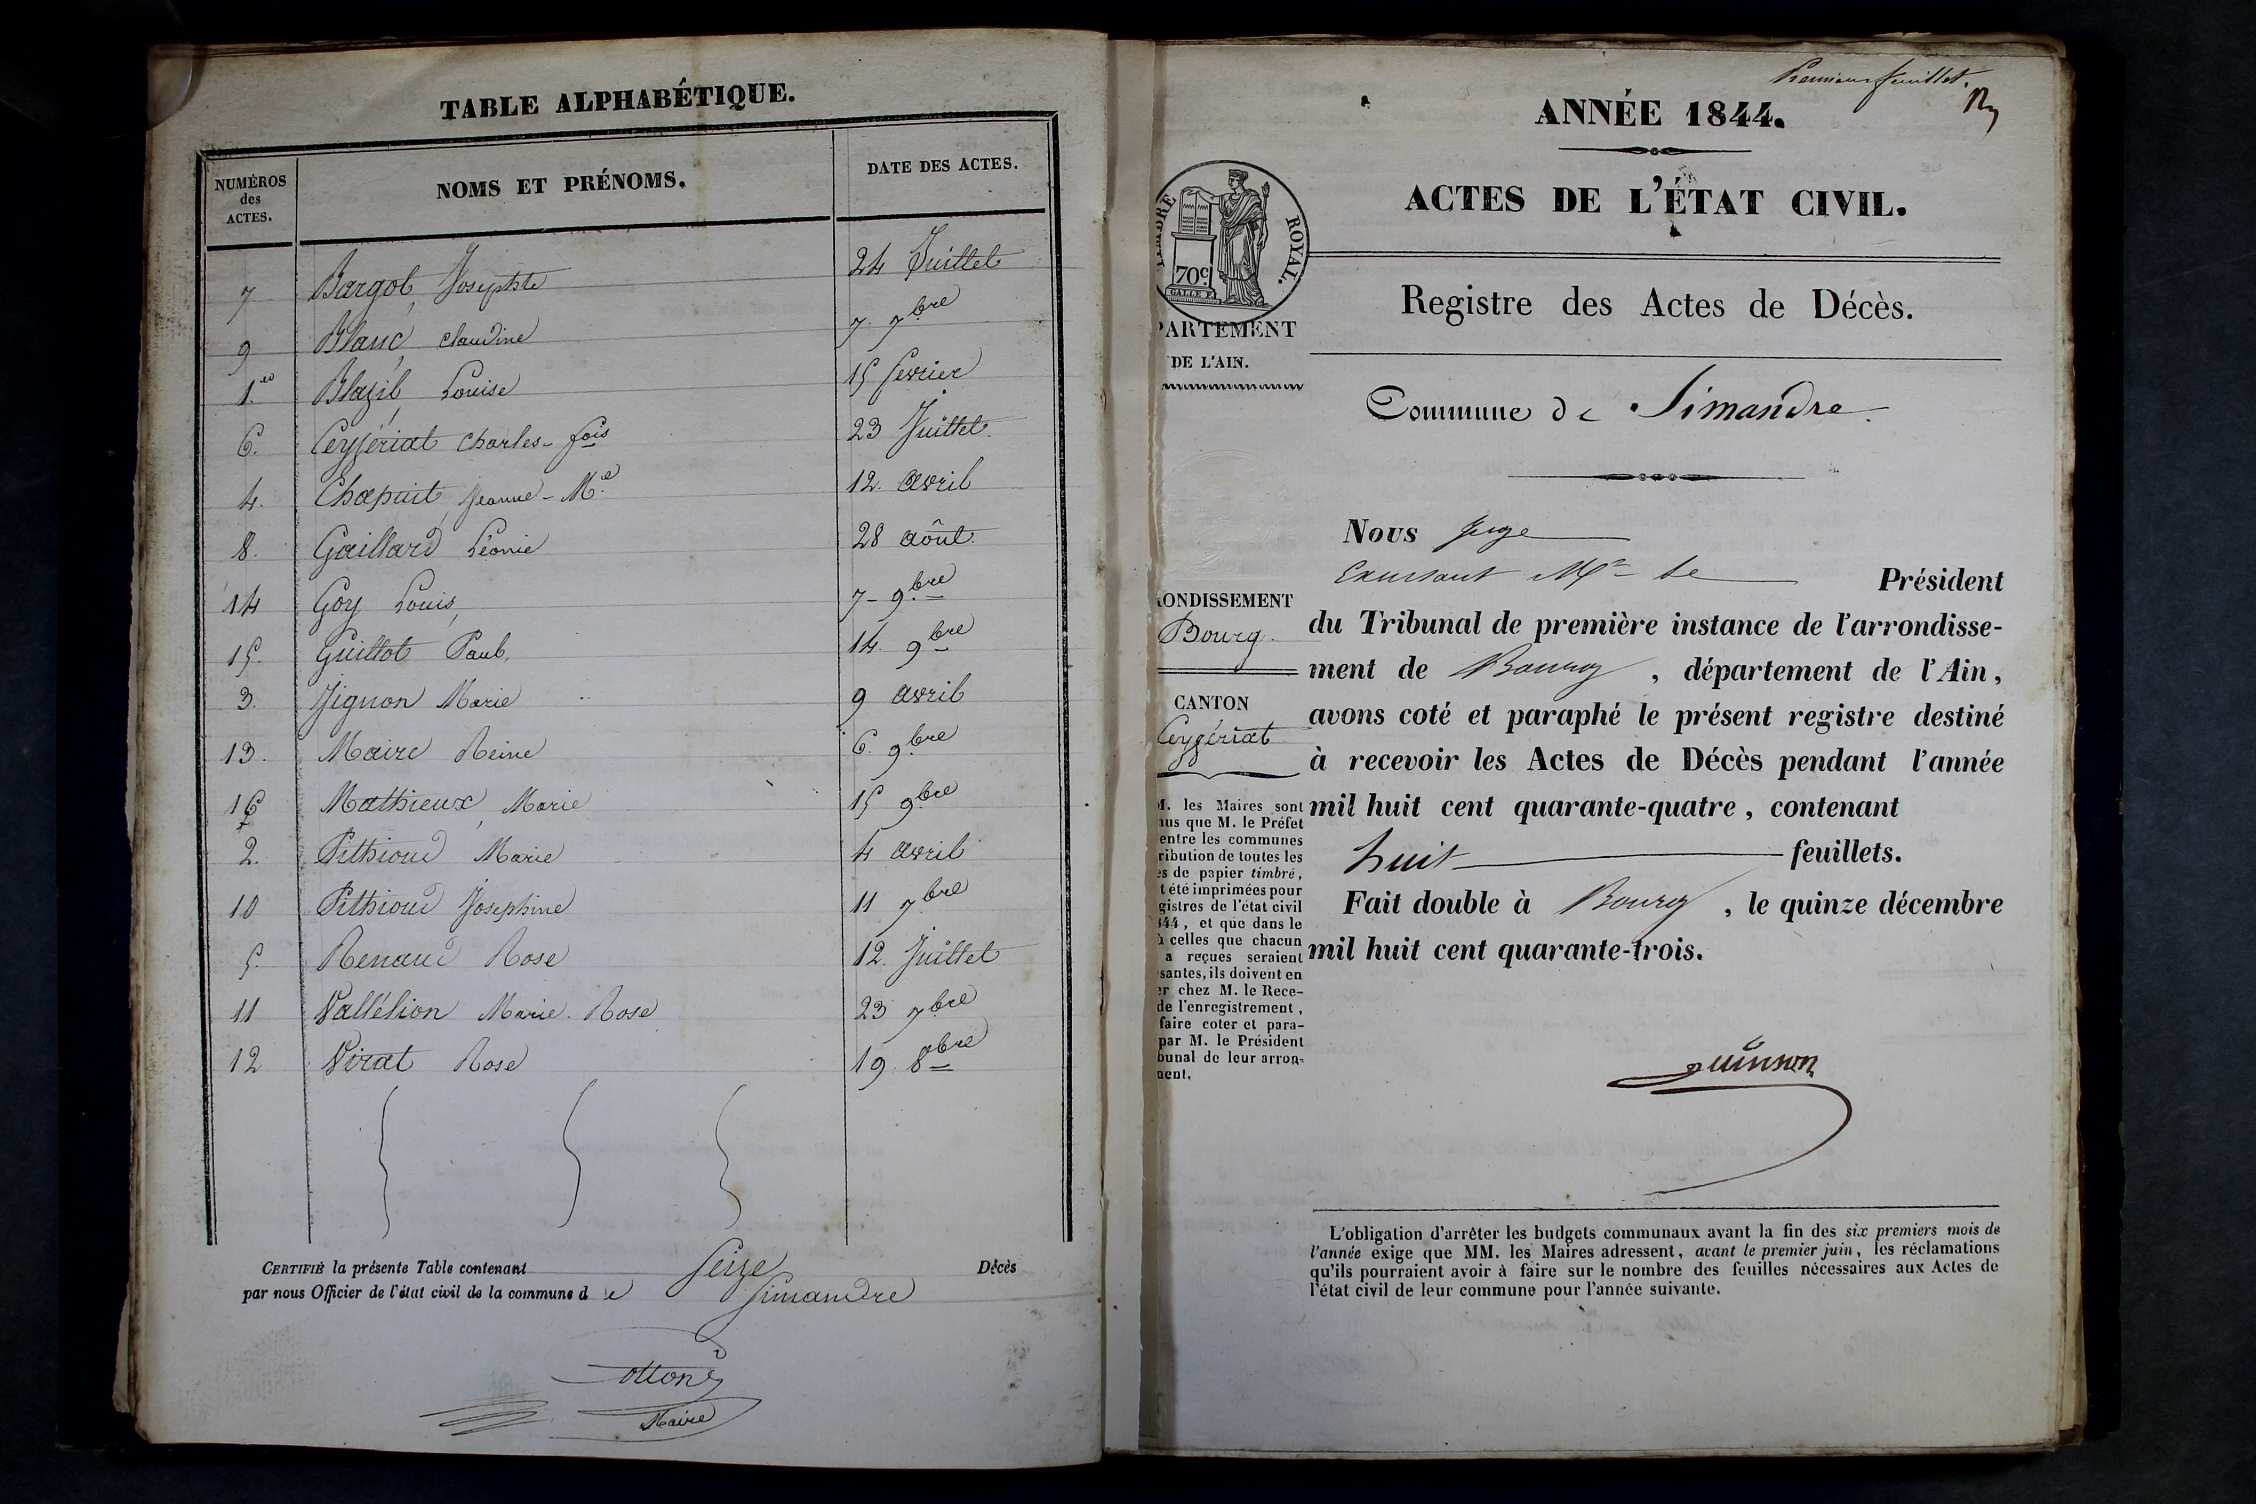 TABLE ALPHABÉTIQUE.
NUMÉROS des ACTES. NOMS ET PRÉNOMS. DATE DES ACTES.
7 Bargot, Josephte 24 Juillet
9 Blanc, Claudine 7. 7bre
1.er Blazit Louise 15 fevrier
6. Ceyzériat Charles-fois 23 Juillet.
4. Chapuit, Jeanne-M.e 12. avril
8. Gaillard Léonie 28 août.
14 Goy Louis, 7-9bre
15. Guillot Paul, 14. 9bre
3. Jignon Marie 9 avril
13. Maire Reine 6. 9bre
16 Mathieux, Marie 15 9bre
2. Pithioud Marie 4 avril
10 Pithioud Josephine 11 7bre
5. Renaud Rose 12. Juillet
11 Vallélion Marie-Rose 23 7bre
12 Virat Rose 19. 8bre
CERTIFIÉ la présente Table contenant Seize Décès
par nous Officier de l'état civil de la commune de Simandre
Maire
Premier feuillet.
ANNÉE 1844.
ACTES DE L'ÉTAT CIVIL.
TIMBRE ROYAL.
70c.
Registre des Actes de Décès.
PARTEMENT
DE L'AIN.
Commune de Simandre.
Nous Juge
Exerçant Mr le Président
ONDISSEMENT
Bourg.
du Tribunal de première instance de l'arrondisse-
ment de Bourg, département de l'Ain,
CANTON
Ceyzériat
avons coté et paraphé le présent registre destiné
à recevoir les Actes de Décès pendant l'année
mil huit cent quarante-quatre, contenant
huit feuillets.
Fait double à Bourg, le quinze décembre
mil huit cent quarante-trois.
M. les Maires sont
us que M. le Préfet
entre les communes
ribution de toutes les
s de papier timbré,
t été imprimées pour
gistres de l'état civil
44, et que dans le
à celles que chacun
a reçues seraient
santes, ils doivent en
er chez M. le Rece-
de l'enregistrement,
faire coter et para-
par M. le Président
bunal de leur arron-
ment.
L'obligation d'arrêter les budgets communaux avant la fin des six premiers mois de
l'année exige que MM. les Maires adressent, avant le premier juin, les réclamations
qu'ils pourraient avoir à faire sur le nombre des feuilles nécessaires aux Actes de
l'état civil de leur commune pour l'année suivante.